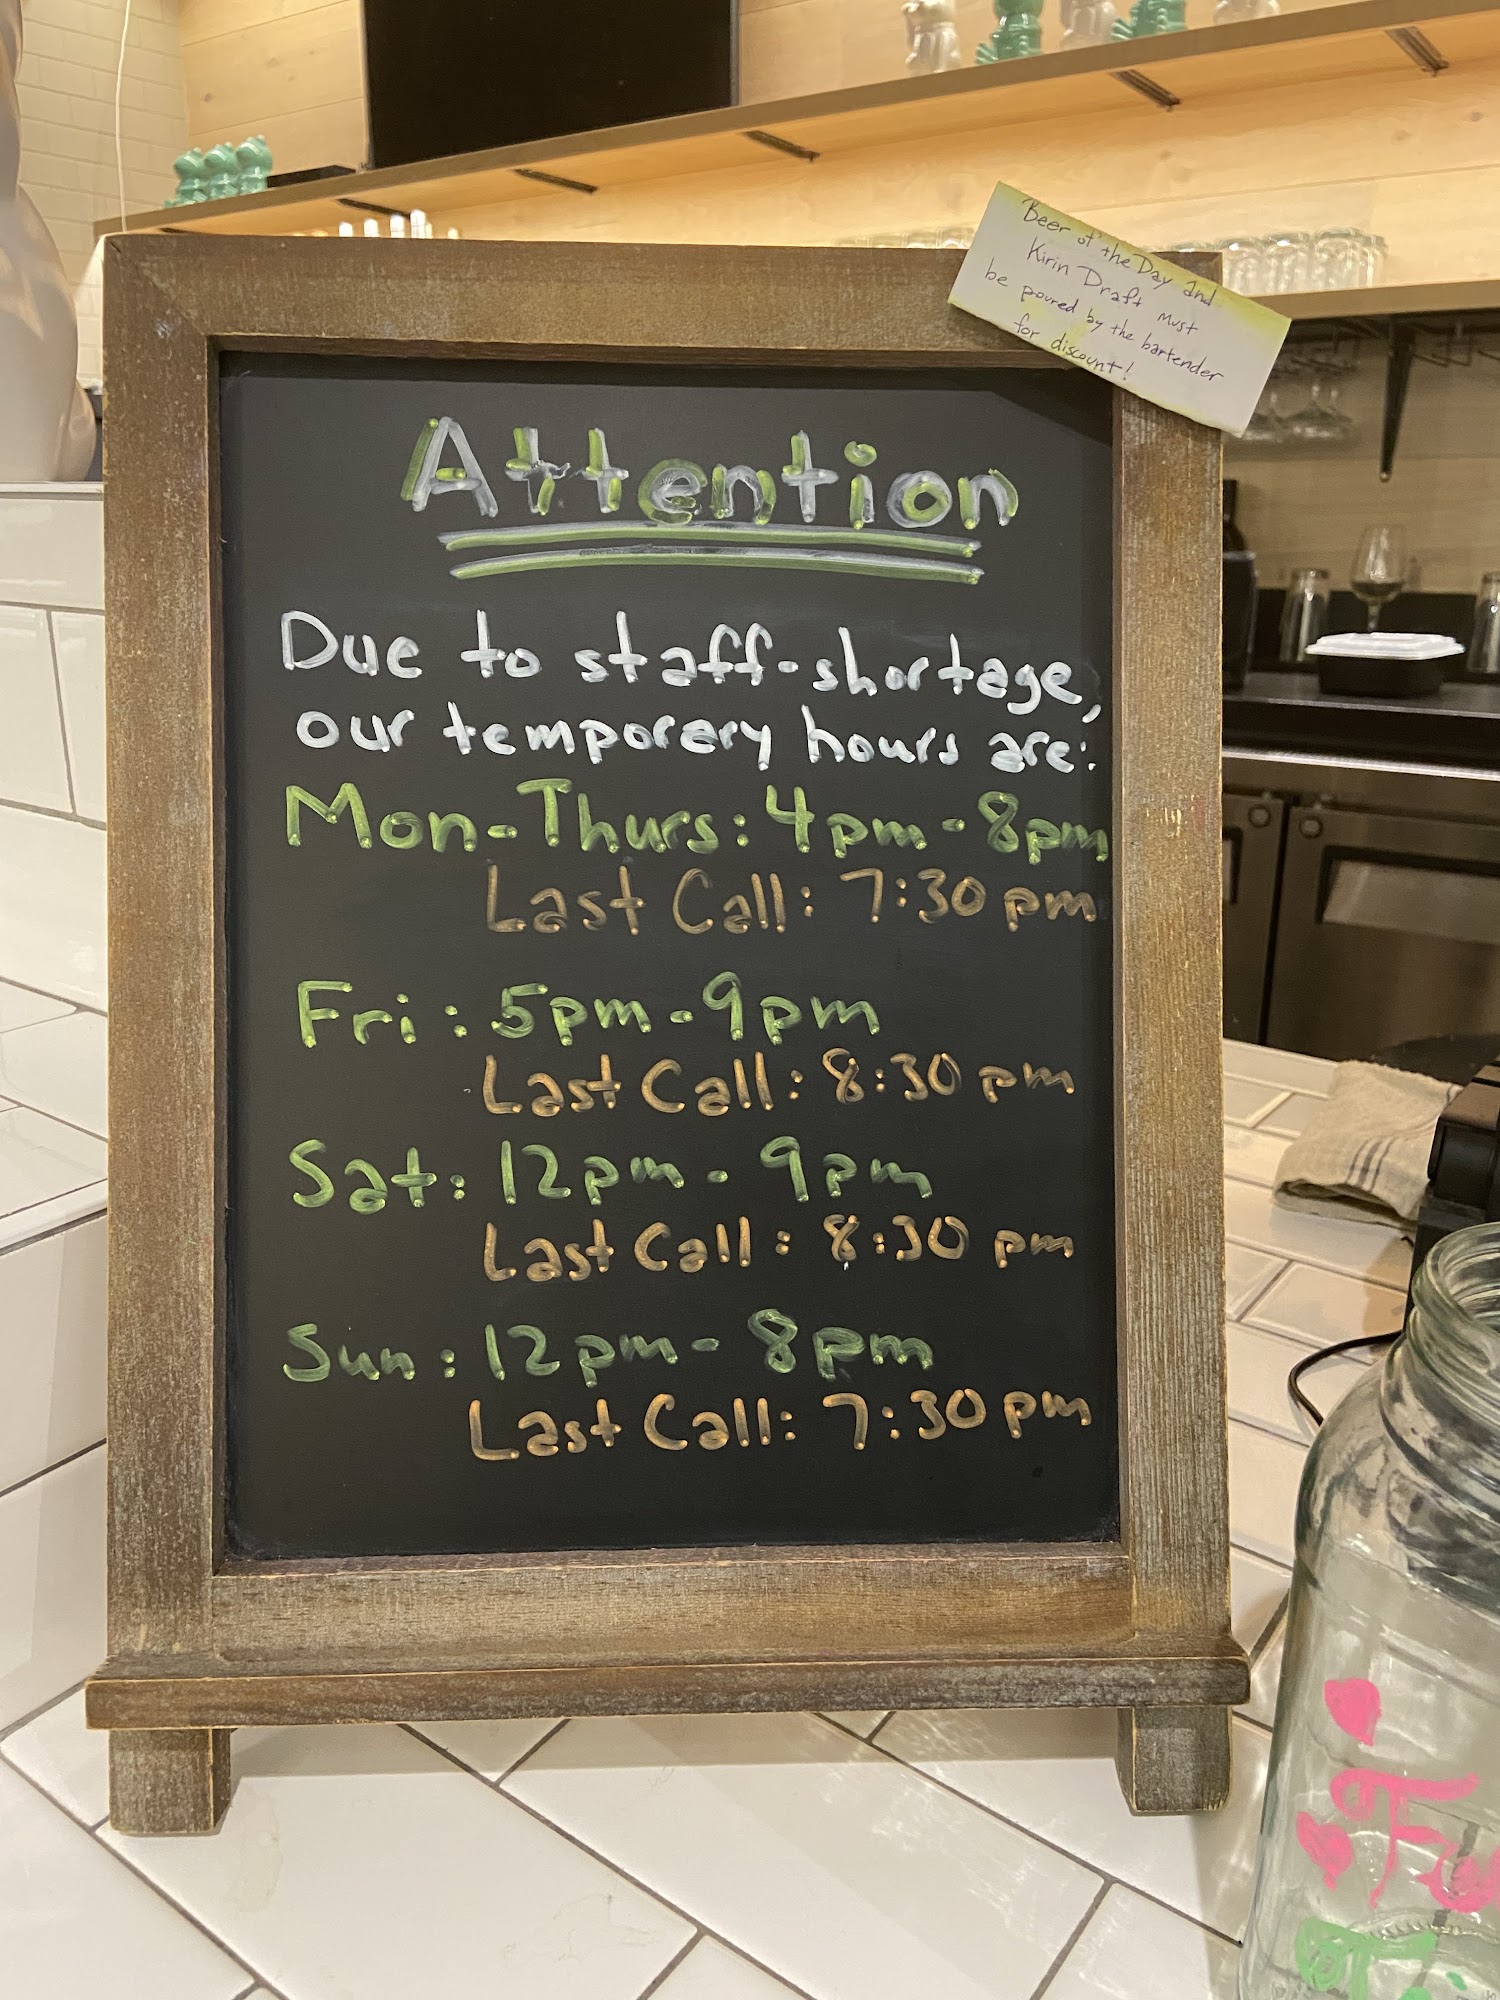 Beer of the Day and
Kirin Draft must
be poured by the bartender
for discount!
Attention
Due to staff-shortage,
our temporary hours are:
Mon-Thurs: 4pm-8pm
Last Call: 7:30 pm
Fri: 5pm-9pm
Last Call: 8:30 pm
Sat: 12pm-9pm
Last Call: 8:30 pm
Sun: 12pm-8pm
Last Call: 7:30 pm